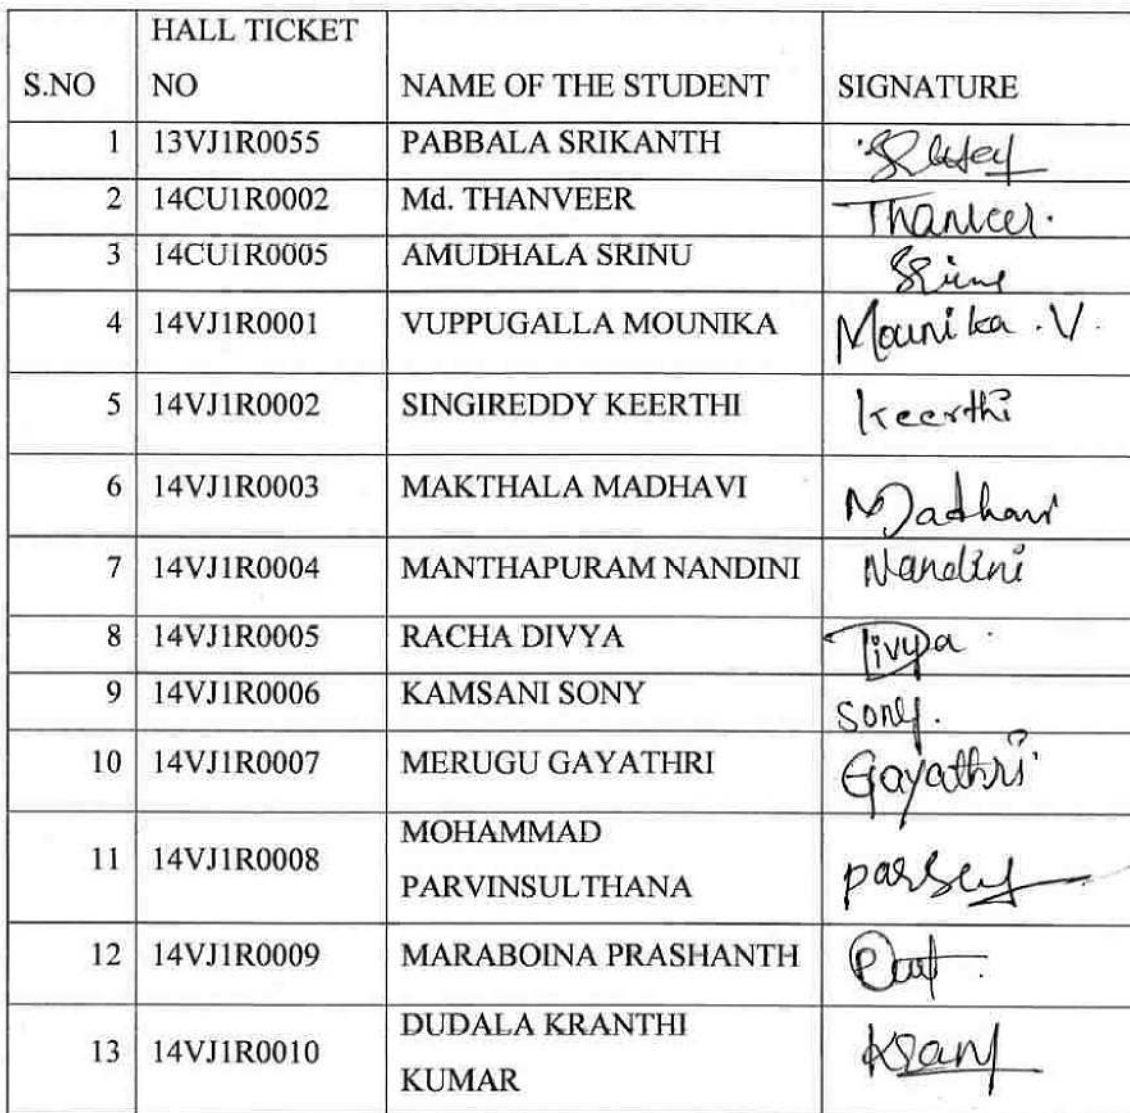 HALL TICKET
S.NO NO NAME OF THE STUDENT SIGNATURE
1 13VJ1R0055 PABBALA SRIKANTH
2 14CU1R0002 Md. THANVEER Thanveer.
3 14CU1R0005 AMUDHALA SRINU
4 14VJ1R0001 VUPPUGALLA MOUNIKA Mounika . V.
5 14VJ1R0002 SINGIREDDY KEERTHI Keerthi
6 14VJ1R0003 MAKTHALA MADHAVI Madhavi
7 14VJ1R0004 MANTHAPURAM NANDINI Nandini
8 14VJ1R0005 RACHA DIVYA Divya
9 14VJ1R0006 KAMSANI SONY sony.
10 14VJ1R0007 MERUGU GAYATHRI Gayathri
MOHAMMAD
11 14VJ1R0008
PARVINSULTHANA
12 14VJ1R0009 MARABOINA PRASHANTH
DUDALA KRANTHI
13 14VJ1R0010
KUMAR